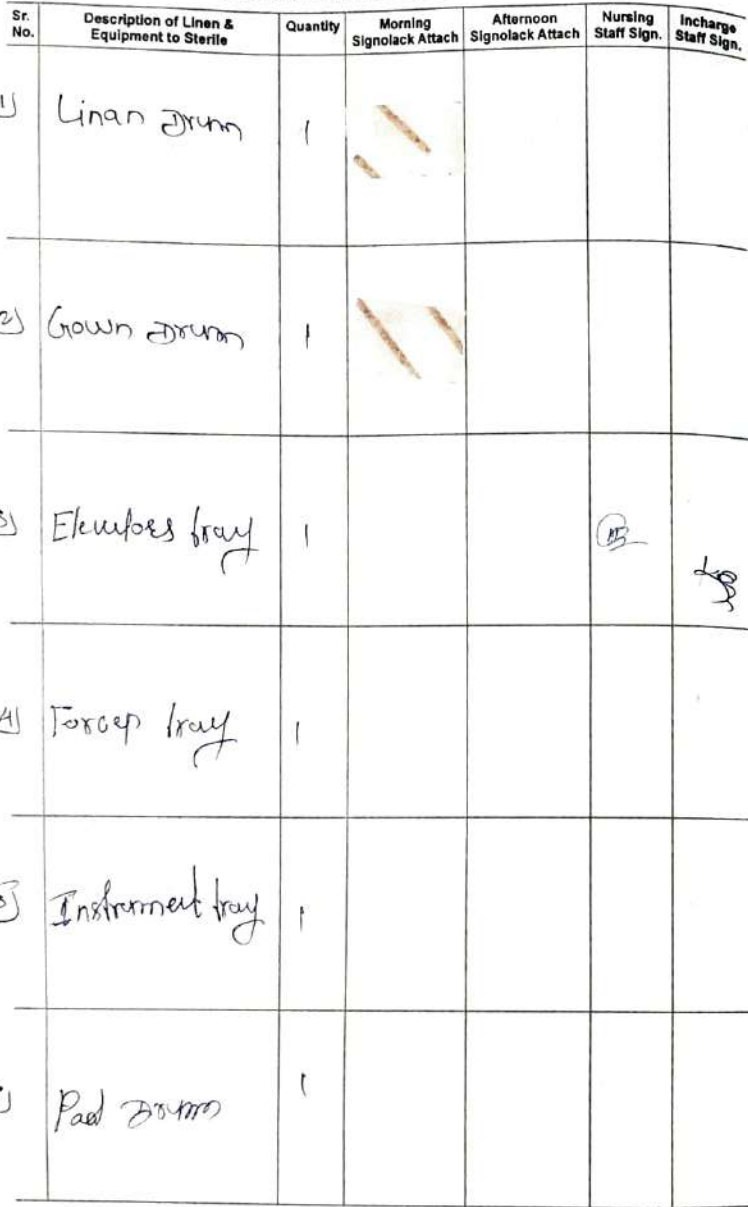 Sr. No. Description of Linen & Equipment to Sterile Quantity Morning Signolack Attach Afternoon Signolack Attach Nursing Staff Sign. Incharge Staff Sign.
1) Linan Drum 1
2) Gown Drum 1
3) tray 1
4) Forcep tray 1
5) Instrument tray 1
Pad Drum 1